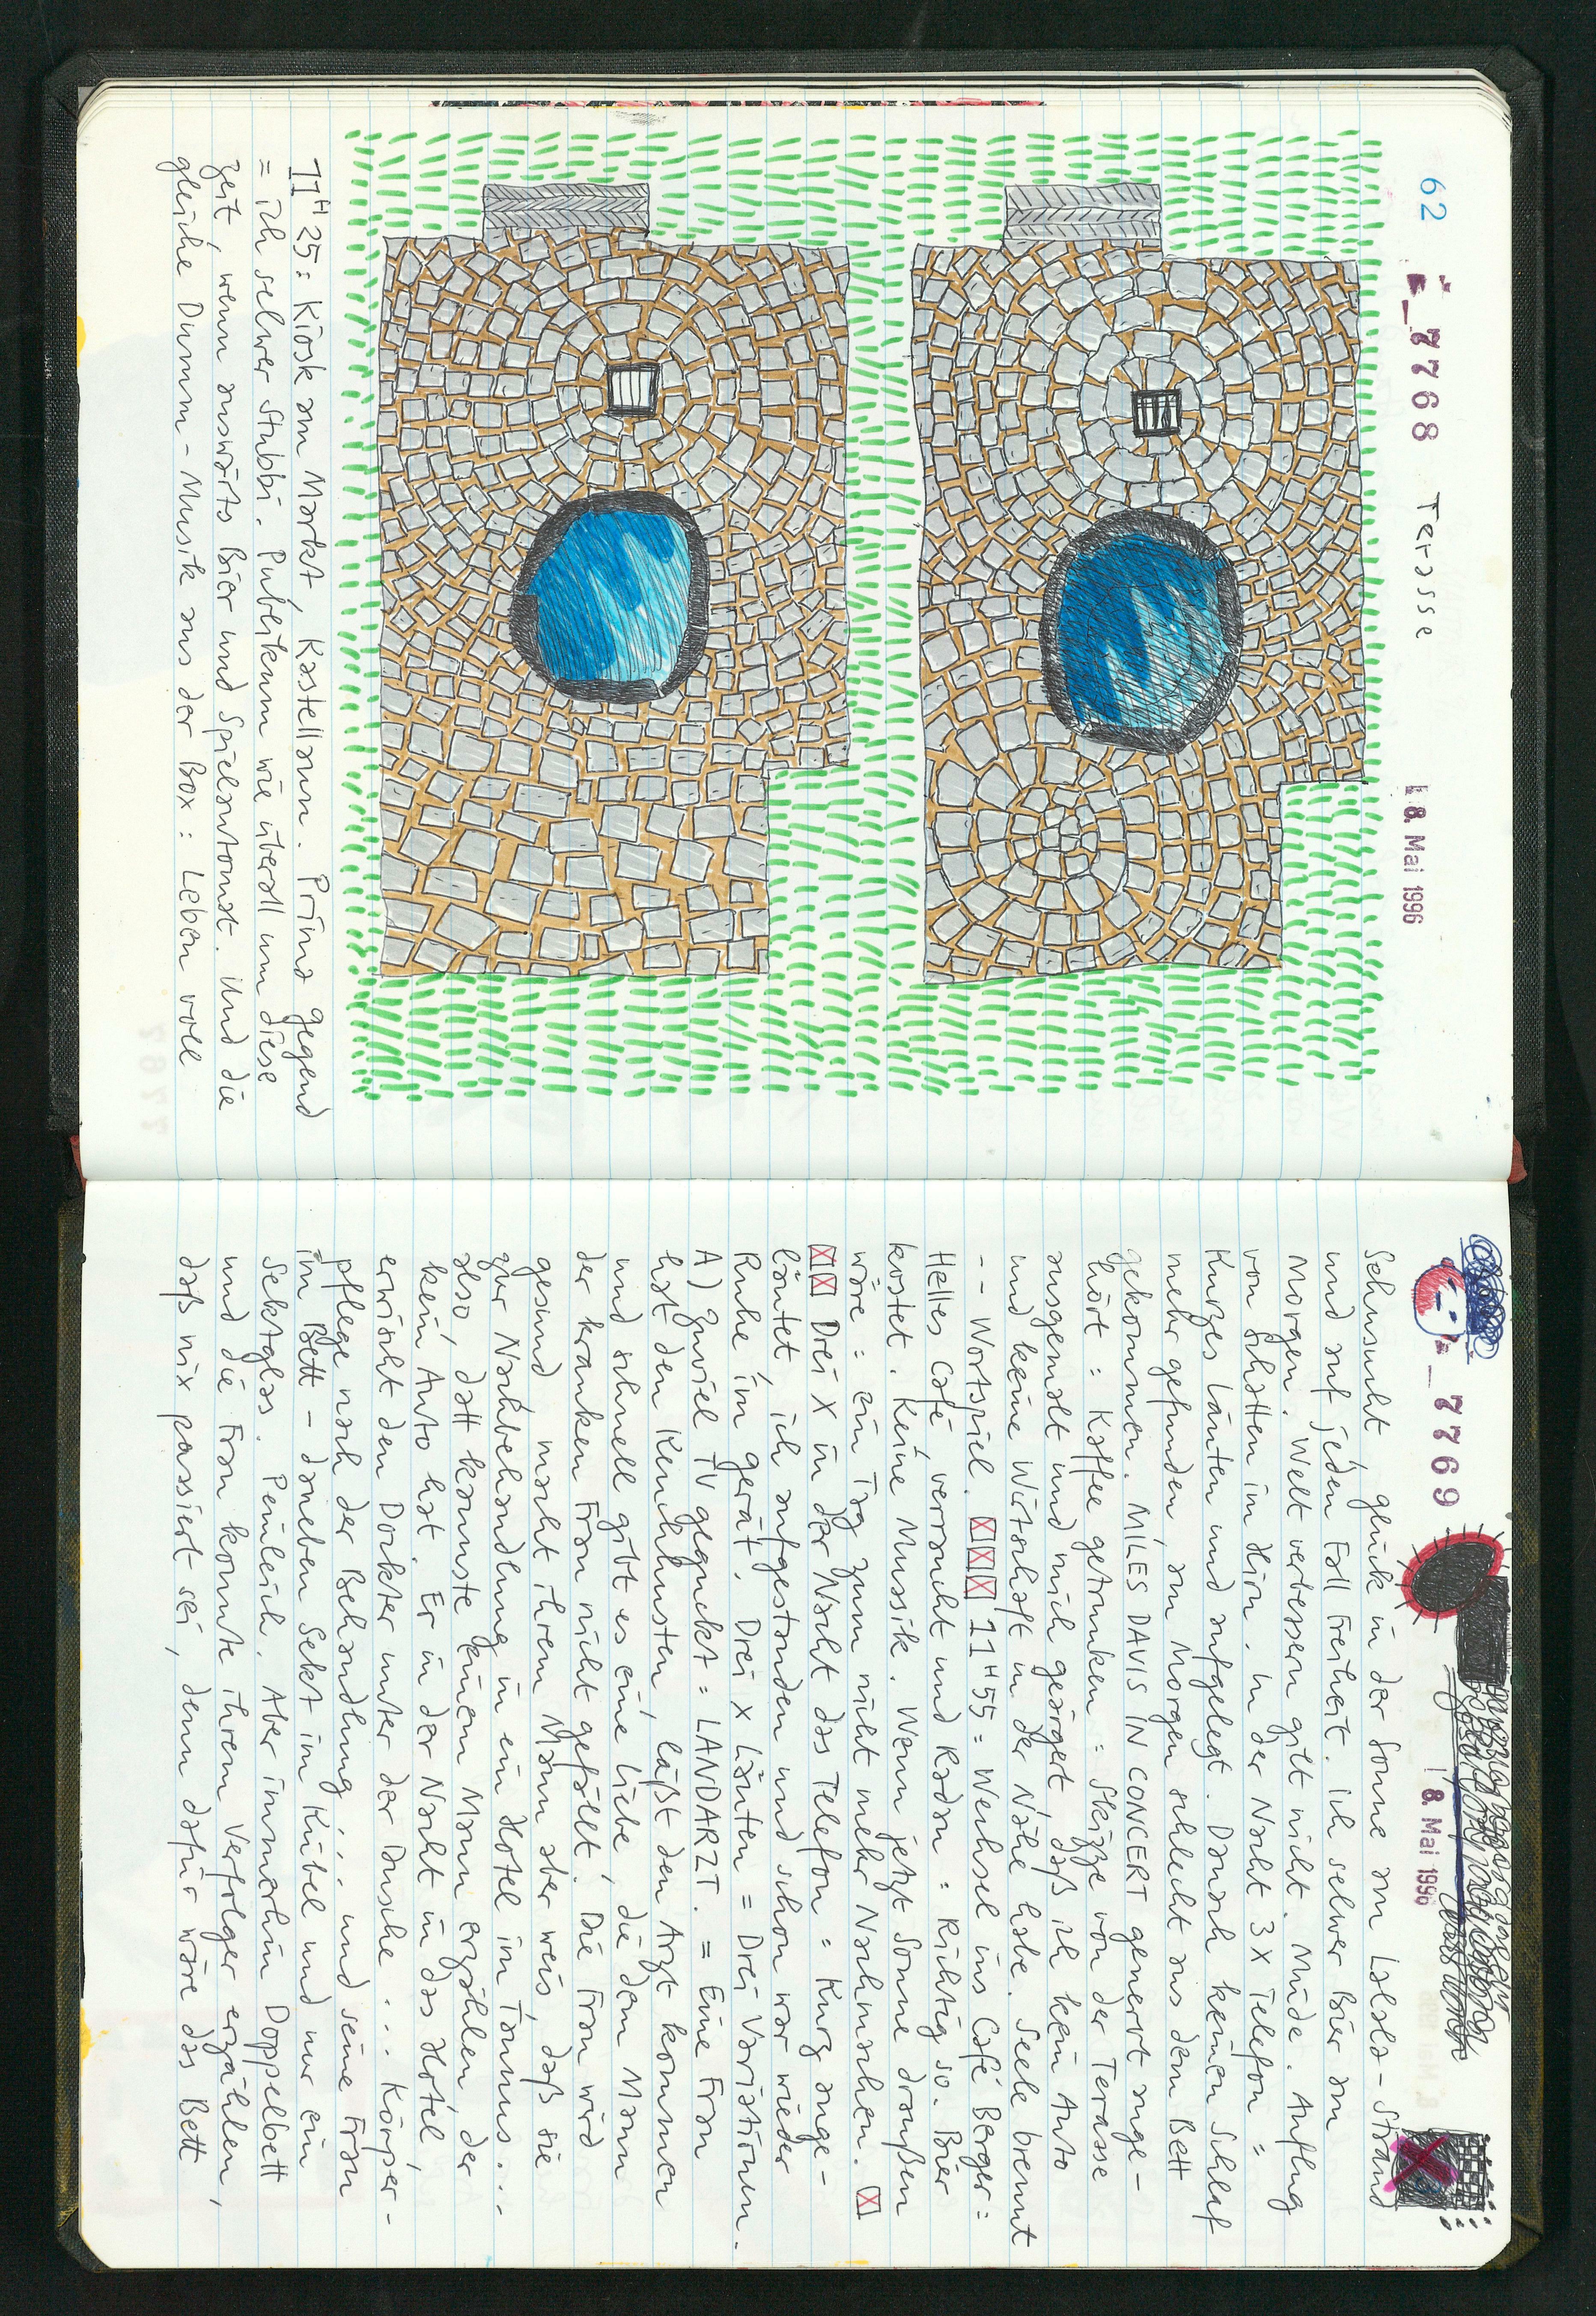 62
7768 Terasse 8. Mai 1996
11H25: Kiosk am Markt, Kastellaun. Prima gegend
= ich selwer stubbi. Pubertkum wie überall um diese
Zeit, wenn auswärts Bier und Spielautomat. Und die
gleiche Dumm-Musik aus der Box: Leben voll
7769 8. Mai 1996
Sehnsucht glück in der Sonne am Lala-Strand
und auf jeden Fall Freiheit. Ich selwer Bier am
Morgen. Welt verbessern gilt nicht. Müde. Anflug
von Schatten im Hirn. In der Nacht 3x Telefon =
Kurzes Läuten und aufgelegt. Danach keinen Schlaf
mehr gefunden, am Morgen schlecht aus dem Bett
gekommen. MILES DAVIS IN CONCERT genervt ange-
hört = Kaffee getrunken = Skizze von der Terasse
ausgemalt und mich geärgert, daß ich kein Auto
und keine Wirtschaft in der Nähe habe. Seele brennt
-- Wortspiel. 11H55 = Wechsel ins Café Berger =
Helles Café, verraucht und Radau = Richtig so. Bier
kostet. Keine Mussik. Wenn jetzt Sonne draußen
wäre = ein Tag zum nicht mehr Nachmachen.
Drei X in der Nacht das Telefon = Kurz ange-
läutet, ich aufgestanden und schon war wieder
Ruhe im gerät. Drei x Läuten = Drei Variationen.
A) Zuviel TV geguckt = LANDARZT. = Eine Frau
hat den Keuchhusten, läßt den Arzt kommen
und schnell gibt es eine Liebe, die dem Mann
der kranken Frau nicht gefällt. Die Frau wird
gesund, macht ihrem Mann aber weis, daß sie
zur Nachbehandlung in ein Hotel im Taunus...
also, datt kannste einem Mann erzählen der
kein Auto hat. Er in der Nacht in das Hotel,
erwischt den Dockter unter der Dusche... Körper-
pflege nach der Behandlung... und seine Frau
im Bett - daneben Sekt im Kübel und nur ein
Sektglas. Peinlich. Aber immerhin Doppelbett
und die Frau konnte ihrem Verfolger erzählen,
daß nix passiert sei, denn dafür wäre das Bett